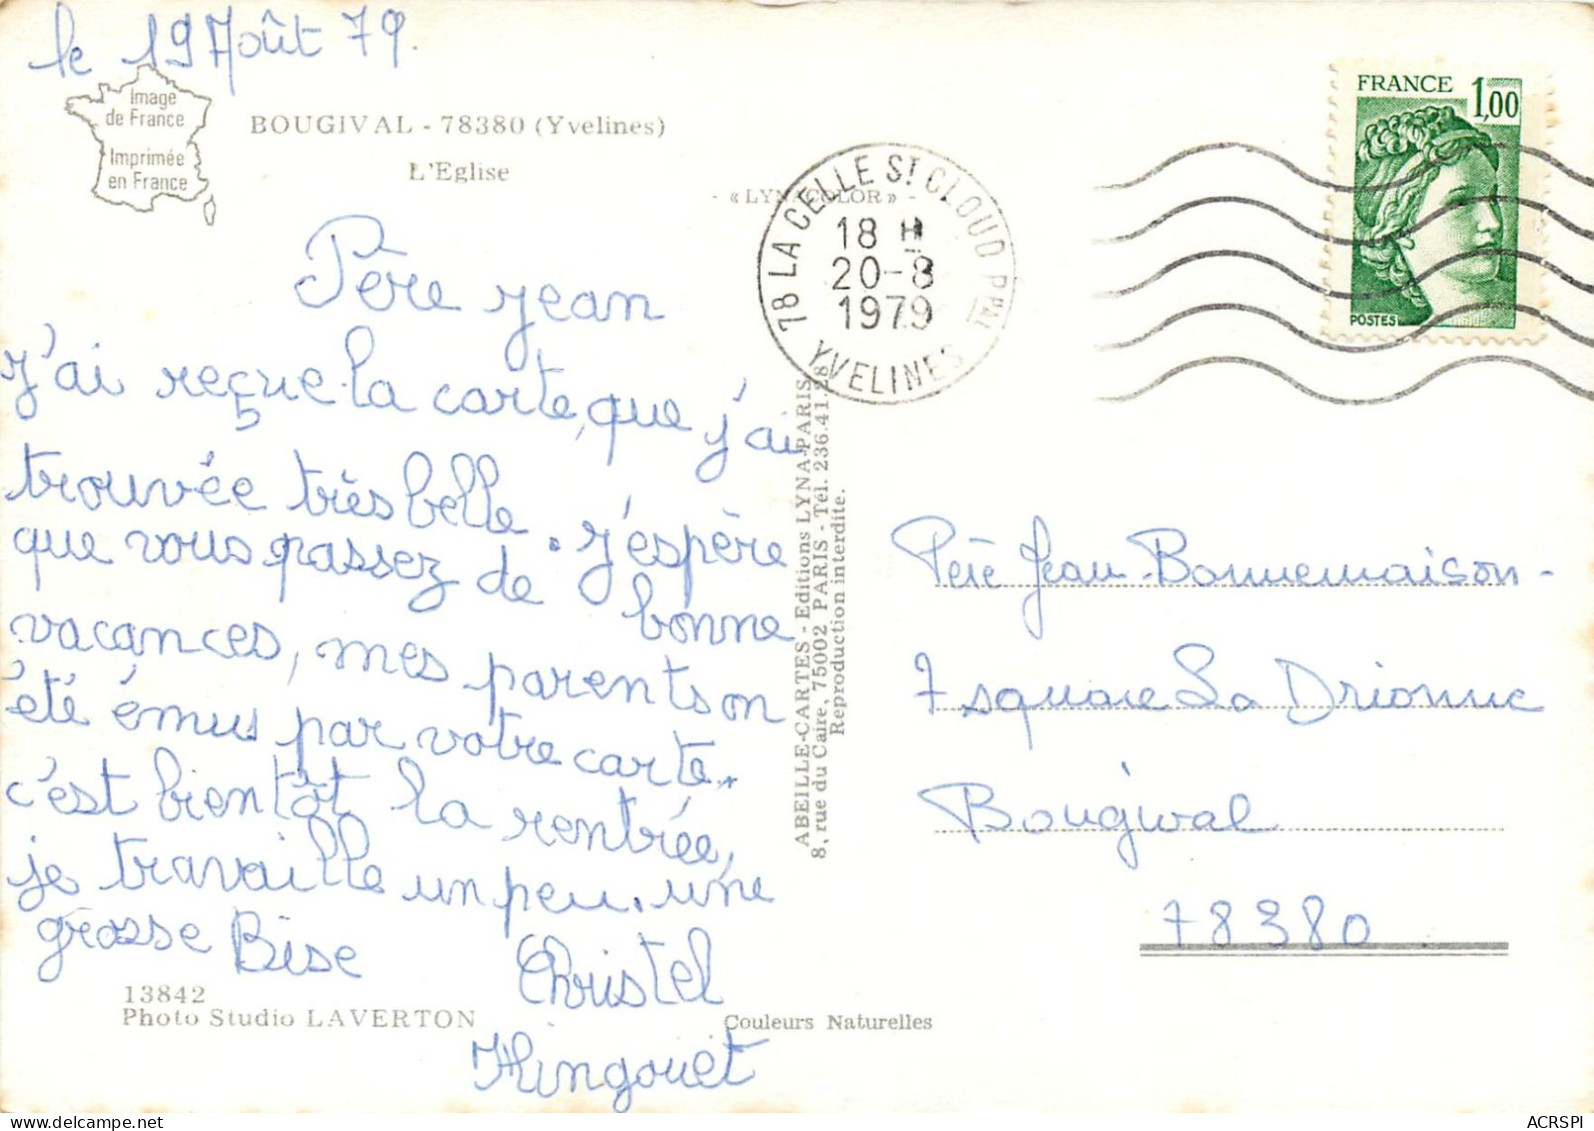 le 19 Août 79.
Image
de France
Imprimée
en France
BOUGIVAL - 78380 (Yvelines)
L'Eglise
- « LYNACOLOR » -
78 LA CELLE ST CLOUD PPAL
18 H
20-8
1979
YVELINES
FRANCE 1,00
POSTES
Père jean
J'ai reçue la carte, que j'ai
trouvée très belle. j'espère
que vous passez de bonne
vacances, mes parents on
été émus par votre carte.
c'est bientôt la rentrée,
je travaille un peu. une
grosse Bise
Christel
Hingouet
ABEILLE-CARTES - Editions LYNA-PARIS
8, rue du Caire, 75002 PARIS - Tél. 236.41.28
Reproduction interdite.
Père Jean Bonnemaison -
7 square La Drionne
Bougival
78380
13842
Photo Studio LAVERTON
Couleurs Naturelles
delcampe.net
ACRSPI